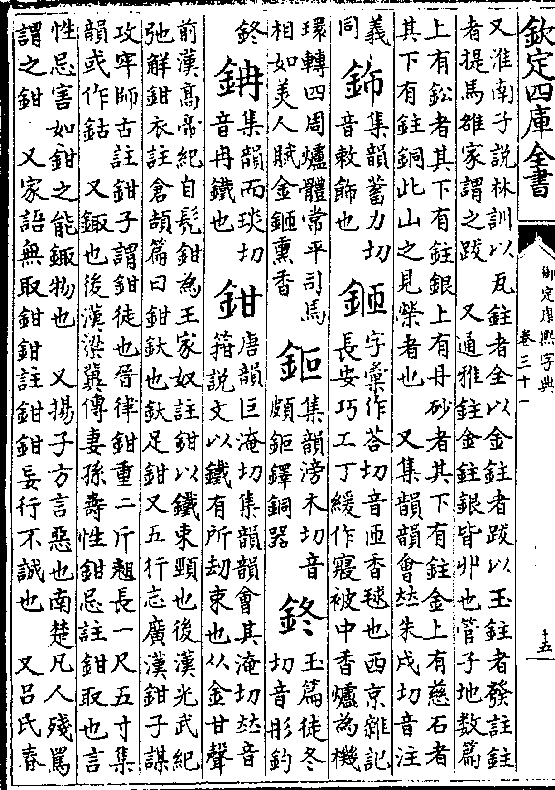 欽定四庫全書
御定康熙字典
卷三十一
十五
又淮南子說林訓以瓦鉒者全以金鉒者跋以玉鉒者發註鉒
者提馬雄家謂之跋　又通雅鉒金鉒銀皆丱也管子地数篇
上有鈆者其下有鉒銀上有丹砂者其下有鉒金上有慈石者
其下有鉒銅此山之見榮者也　又集韻韻會𠀤朱戍切音注
義
同
鉓
集韻蓄力切
音敕飾也
鉔
字彙作荅切音匝香毬也西京雜記
長安巧工丁緩作寢被中香爐為機
環轉四周爐體常平司馬
相如美人賦金鉔熏香
鉕
集韻滂禾切音
頗鉕鐸銅器
鉖
玉篇徒冬
切音彤釣
鉖
集韻而琰切
音冉鐵也
鉗
唐韻巨淹切集韻韻會其淹切𠀤音
箝說文以鐵有所劫束也从金甘聲
前漢高帝紀自髠鉗為王家奴註鉗以鐵束頸也後漢光武紀
弛解鉗衣註倉頡篇曰鉗釱也釱足鉗又五行志廣漢鉗子謀
攻牢師古註鉗子謂鉗徒也晉律鉗重二斤翹長一尺五寸集
韻或作鉆　又鋷也後漢梁冀傳妻孫壽性鉗忌註鉗取也言
性忌害如鉗之能鋷物也　又揚子方言惡也南楚凡人殘罵
謂之鉗　又家語無取鉗鉗註鉗鉗妄行不誠也　又呂氏春